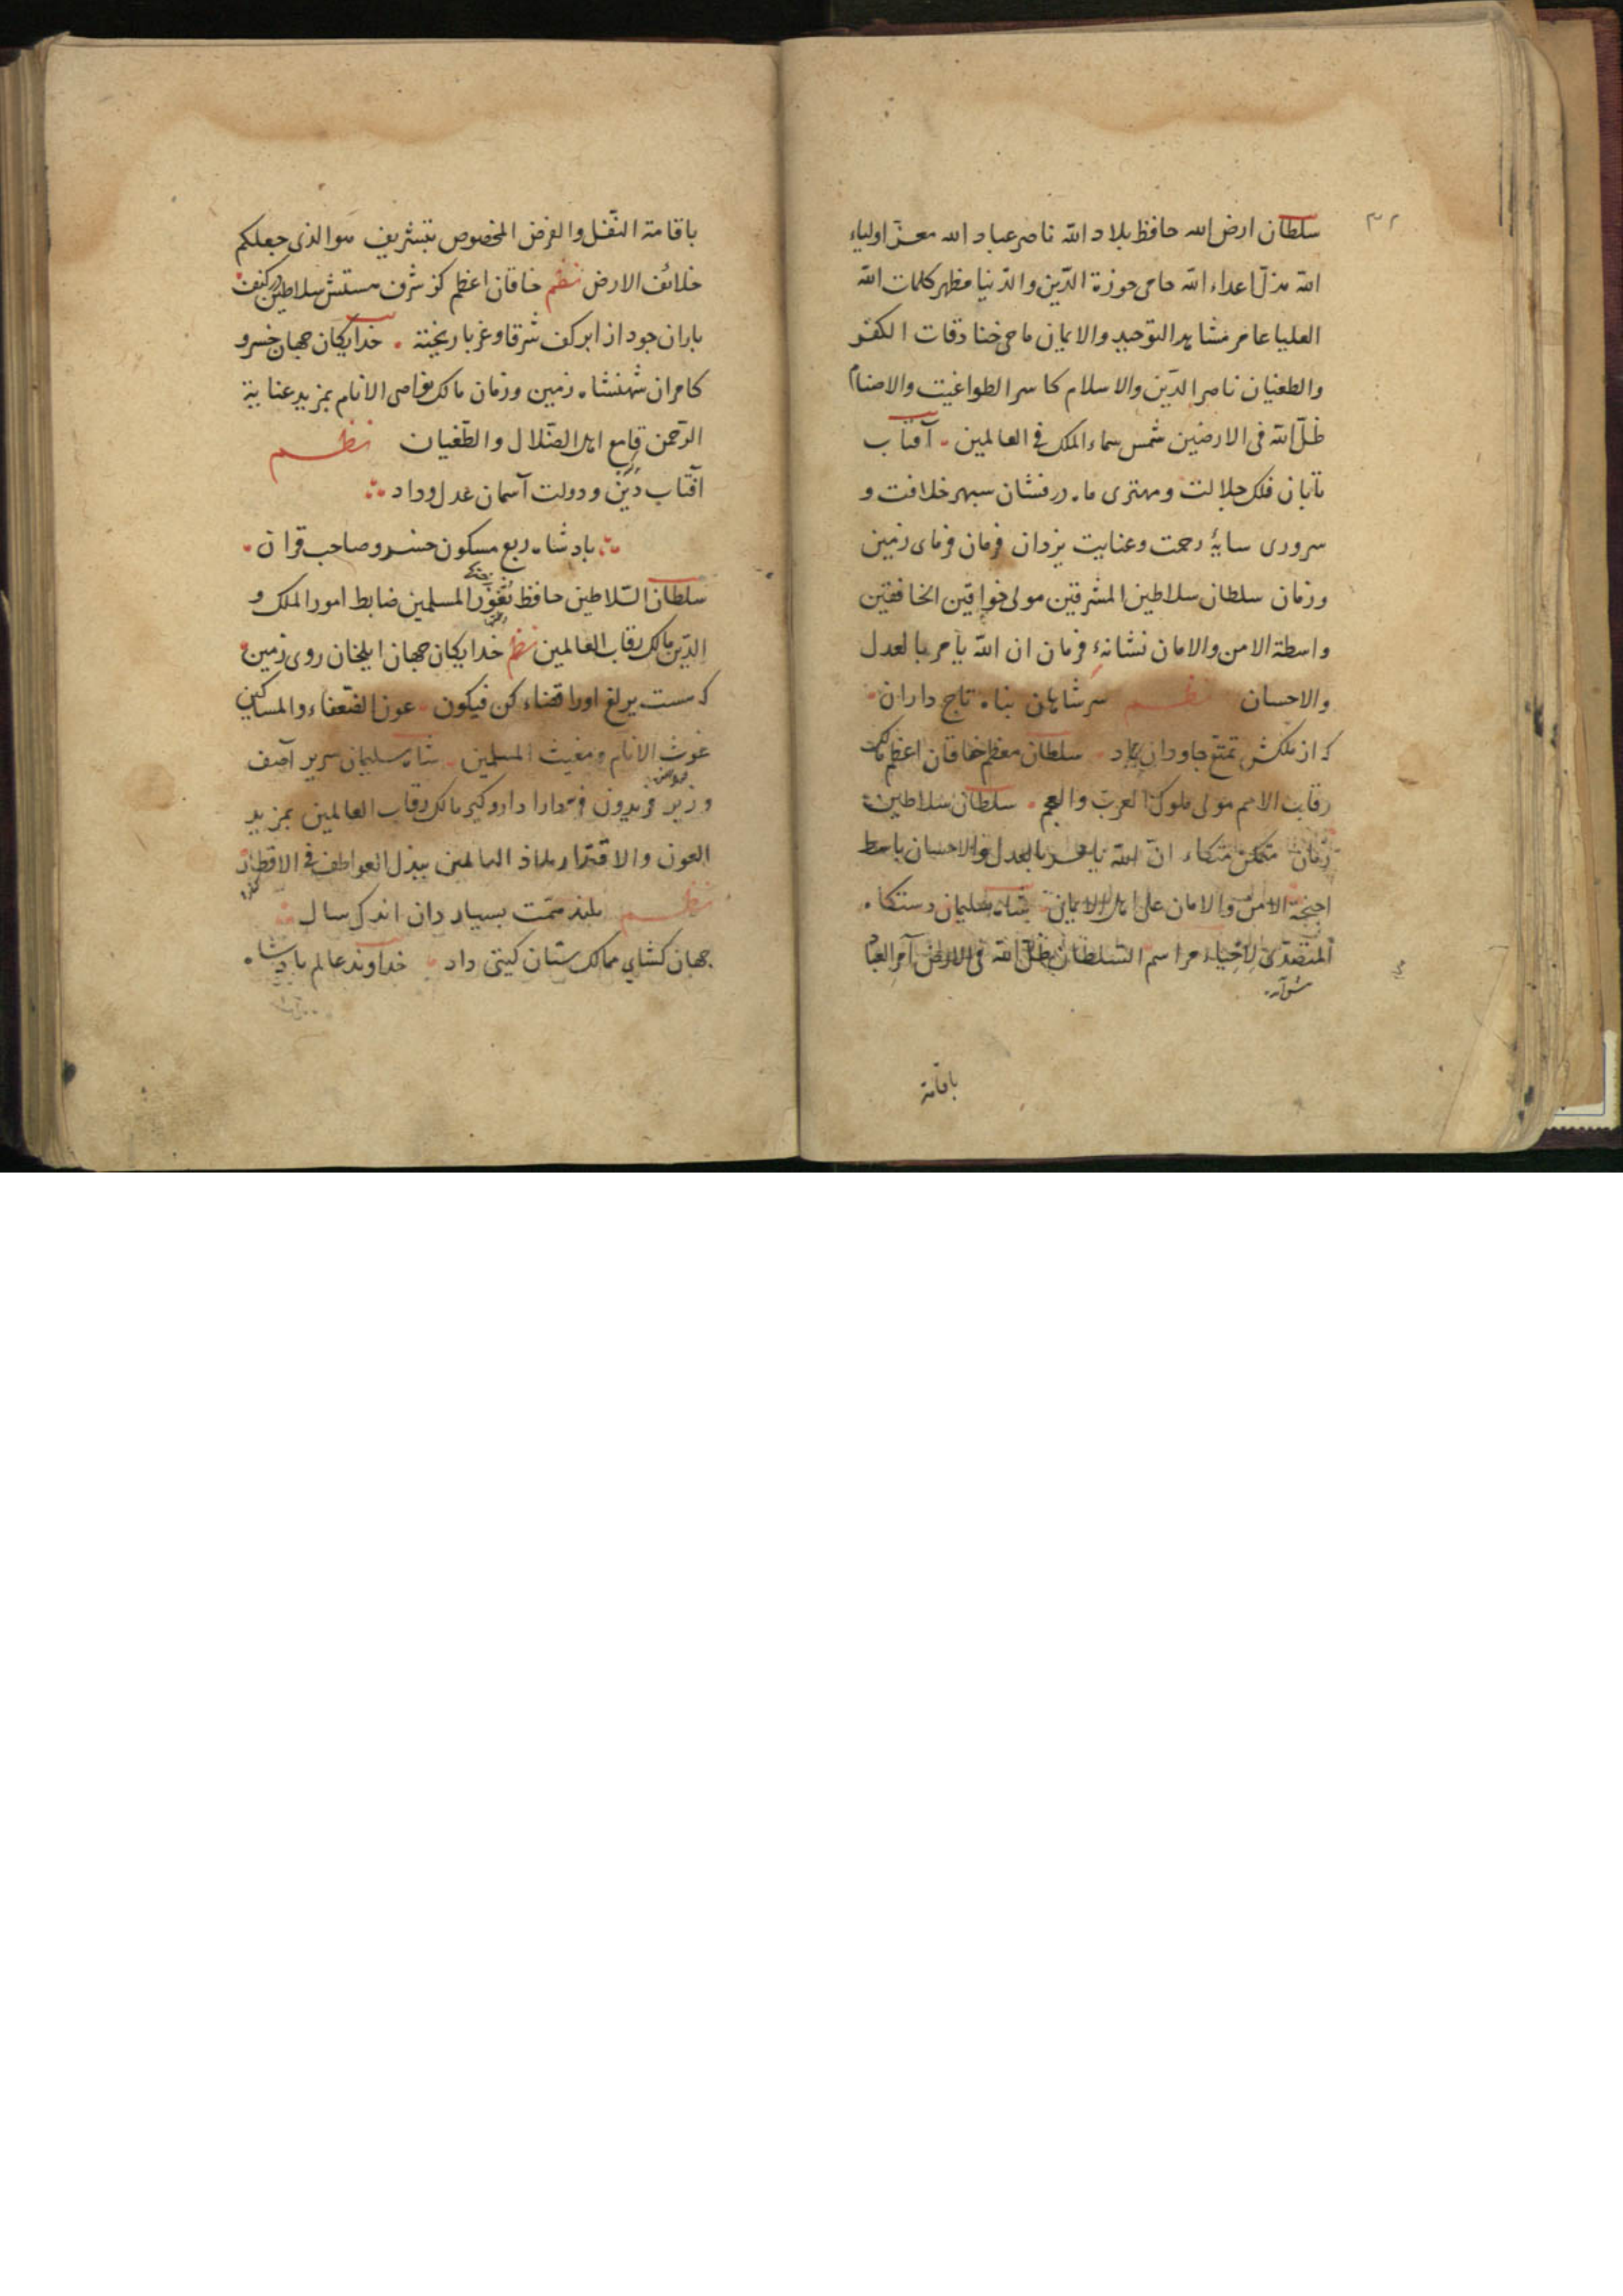 ۳۲
سلطان ارض الله حافظ بلاد الله ناصر عباد الله معزّ اولیاء
الله مذلّ اعداء الله حامی حوزة الدّین والدّنیا مظهر کلمات الله
العلیا عامر مشاهد التوحید والایمان ماحی خنادقات الکفر
والطغیان ناصر الدّین والاسلام کاسر الطواغیت والاصنام
ظلّ الله فی الارضین شمس سماء الملک فی العالمین آفتاب
تابان فلک جلالت ومهتری ماه درفشان سپهر خلافت و
سروری سایهٔ رحمت وعنایت یزدان فرمان فرمای زمین
وزمان سلطان سلاطین المشرقین مولی خواقین الخافقین
واسطة الامن والامان نشانهٔ فرمان ان الله یأمر بالعدل
والاحسان نظم سر شاهان پناه تاج داران
که از ملکش تمتع جاودان باد سلطان معظم خاقان اعظم مالک
رقاب الامم مولی ملوک العرب والعجم سلطان سلاطین
زمان متمکن متکاء انّ الله یأمر بالعدل والاحسان باسط
اجنحة الامن والامان علی اهل الایمان شاه سلیمان دستکاه
المتصدّی لاحیاء مراسم السلطان ظلّ الله فی الارض آمر العباد
باقامة
باقامة النّفل والفرض المخصوص بتشریف هوالذی جعلکم
خلائف الارض نظم خاقان اعظم کز شرف هستش سلاطین در کنف
باران جود از ابر کف شرقا وغربا ریخته خدایکان جهان خسرو
کامران شهنشاه زمین وزمان مالک نواصی الانام بمزید عنایة
الرّحمن قامع اهل الضّلال والطّغیان نظم
آفتاب دین ودولت آسمان عدل وداد
پادشاه ربع مسکون خسرو صاحب قران
سلطان السّلاطین حافظ ثغور المسلمین ضابط امور الملک و
الدّین مالک رقاب العالمین نظم خدایکان جهان ایلخان روی زمین
که هست یرلغ اورا قضاء کن فیکون عون الضّعفاء والمساکین
غوث الانام ومغیث المسلمین شاه سلیمان سریر آصف
وزیر فریدون فر دارا دار وکیر مالک رقاب العالمین بمزید
العون والاقتدار ملاذ العالمین ببذل العواطف فی الاقطار
نظم بلند همّت بسیار دان اندک سال
جهان کشای ممالک ستان کیتی دار خداوند عالم پادشاه